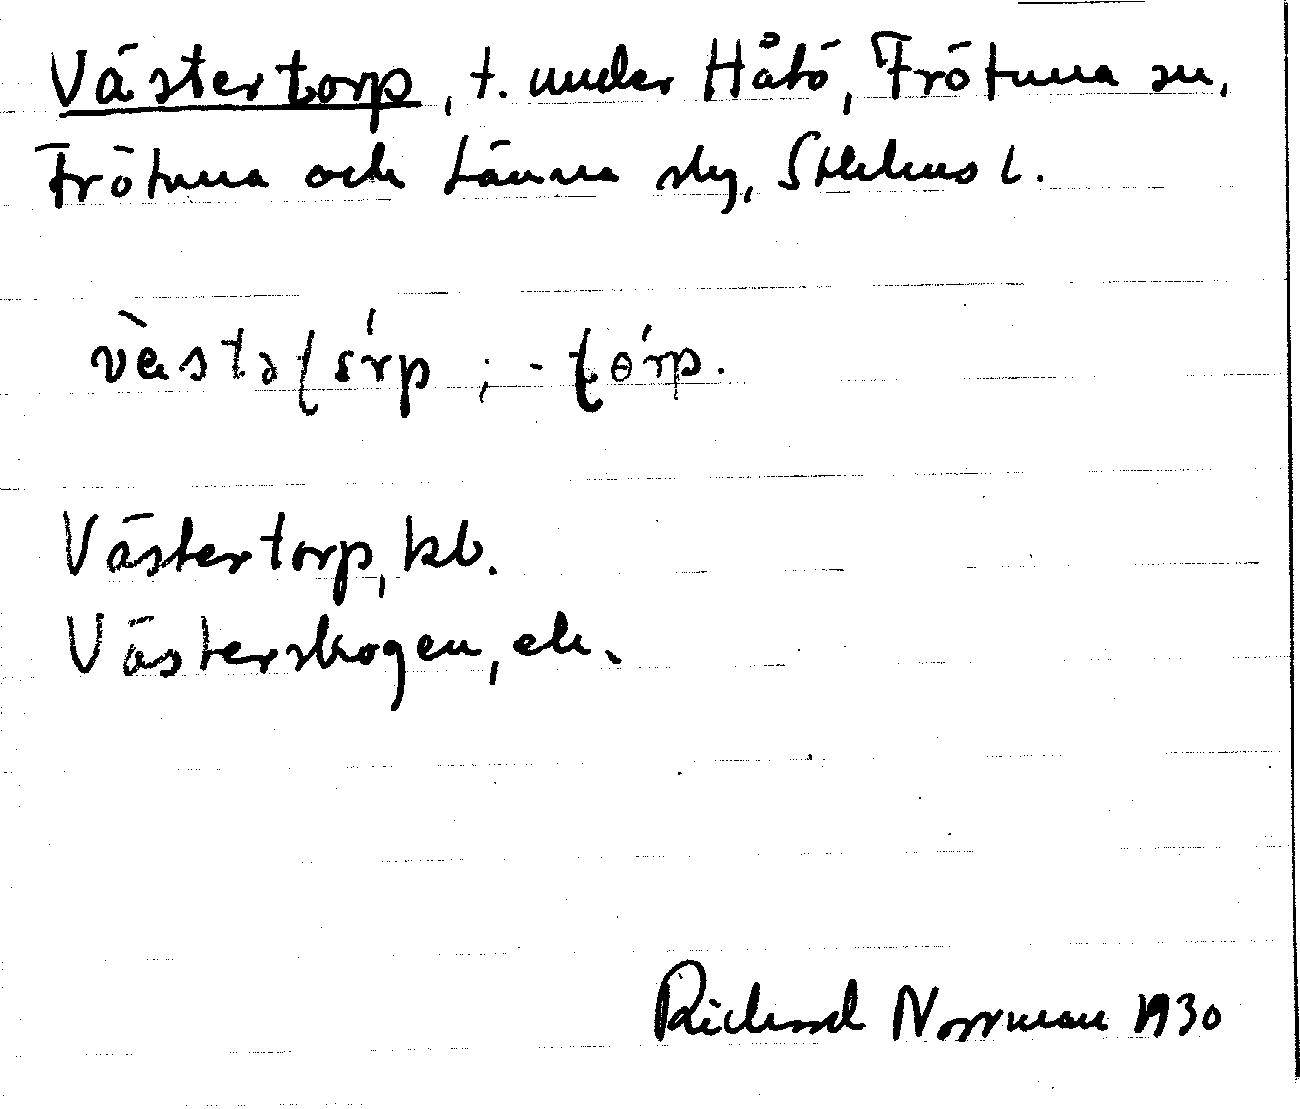 Västertorp, t. under Håtö, Frötuna sn,
Frötuna och Länna slg, Sthlms l.
Västertorp, kb.
Västerskogen, ek.
Richard Norrman 1930